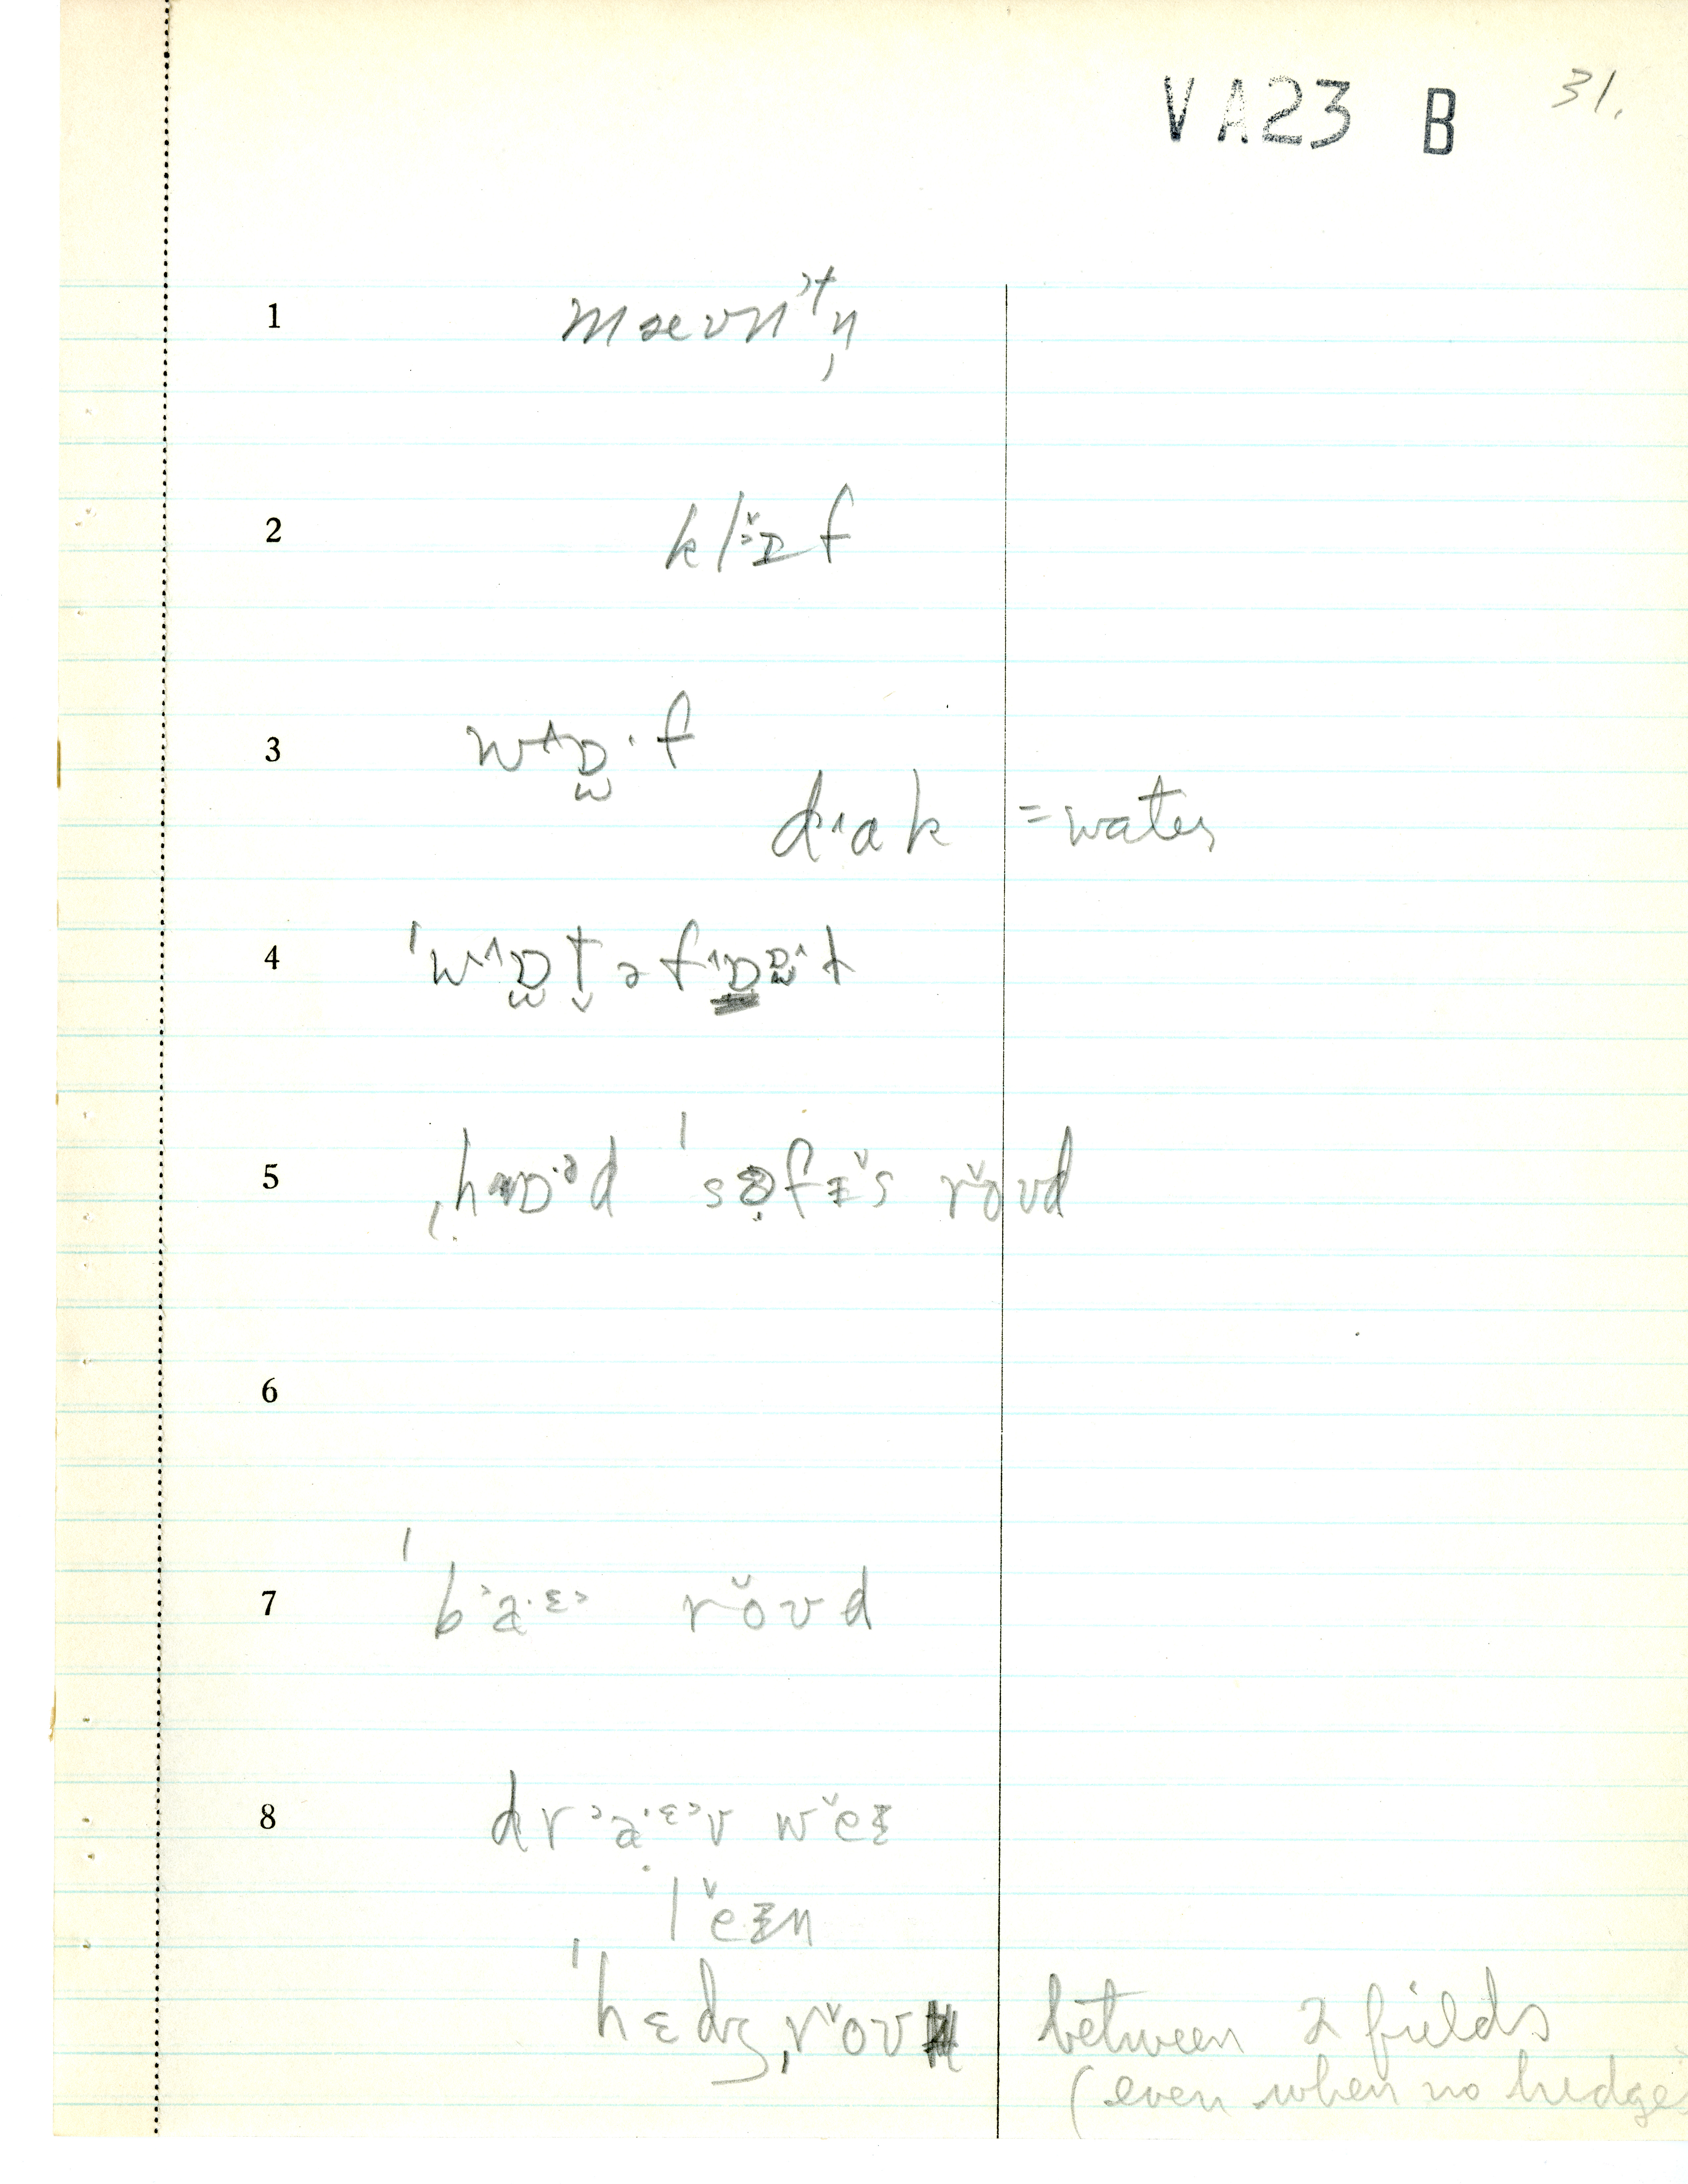 VA23 B 31.
1 mæʊnᵊtn̩
2 klɒf
3 wɒ·f
dɑk = water
4 ˈwɒtəfɒt
5 ˌhɒ·ᵊd ˈsɚfɪs roʊd
6
7 ˈba·ɛ roʊd
8 dra·ɛv weɪ
leɪn
ˈhɛdʒˌroʊ between 2 fields
(even when no hedges